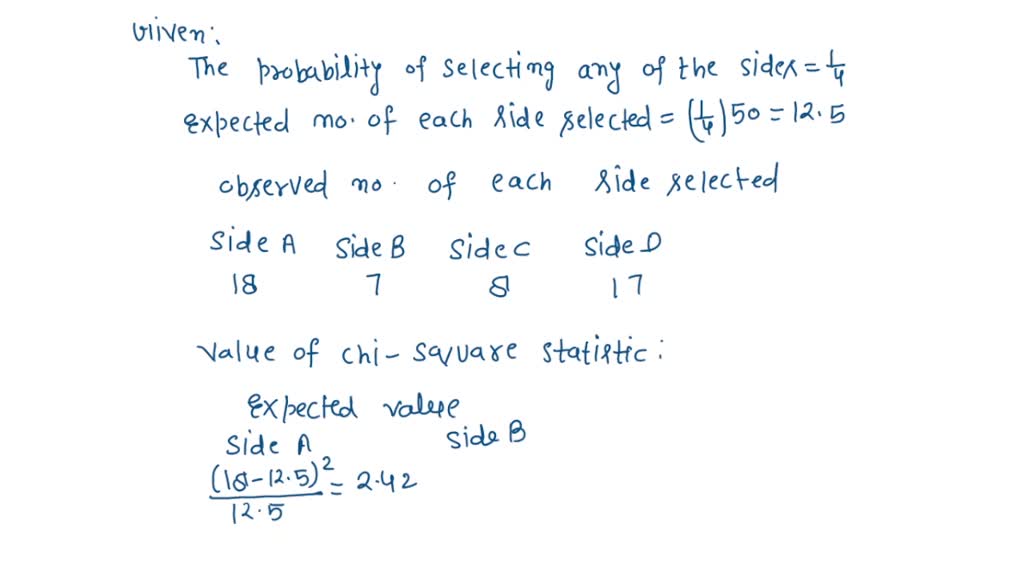 Given:
The probability of selecting any of the sides = 1/4
expected no. of each side selected = (1/4) 50 = 12.5
observed no. of each side selected
Side A Side B Side C Side D
18 7 8 17
Value of chi-square statistic:
Expected value
Side A Side B
(18-12.5)²/12.5 = 2.42